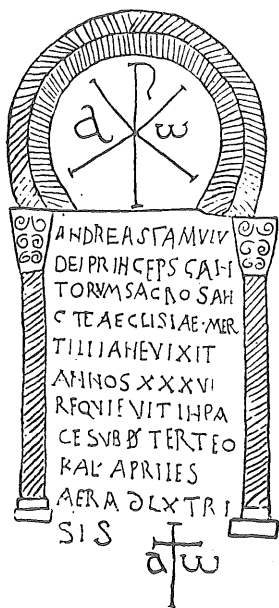 α ω
ANDREAS FAMVLV
DEI PRINCEPS CAN
TORVM SACROSAN
CTE AECLISIAE · MER
TILLIANE VIXIT
ANNOS XXXVI
REQVIEVIT IN PA
CE SVB D TERTEO
KAL APRILES
AERA DLXTRI
SIS
α ω